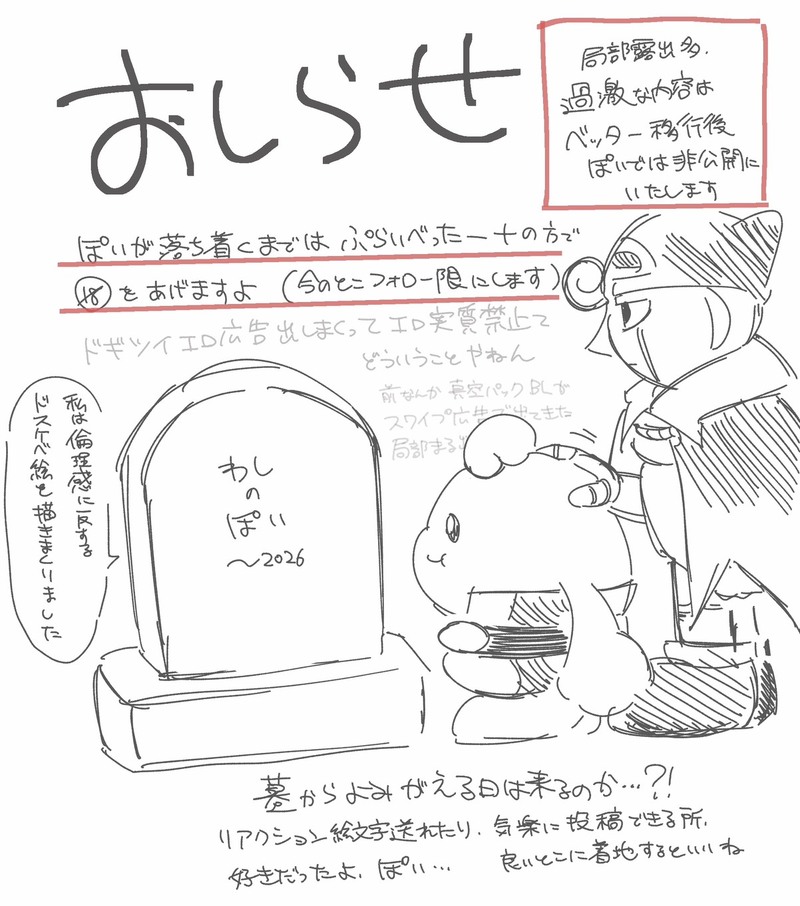 おしらせ
局部露出多、
過激な内容は
ベッター移行後
ぽいでは非公開に
いたします
ぽいが落ち着くまでは ぷらいべったー+の方で
⑱をあげますよ (今のとこフォロー限にします)
ドギツイエロ広告出しまくってエロ実質禁止て
どういうことやねん
前なんか真空パックBLが
スワイプ広告で出てきた
局部まる
私は倫理感に反する
ドスケベ絵を描きまくりました
わし
の
ぽい
〜2026
墓からよみがえる日は来るのか…?!
リアクション絵文字送れたり、気楽に投稿できる所、
好きだったよ、ぽい… 良いとこに着地するといいね